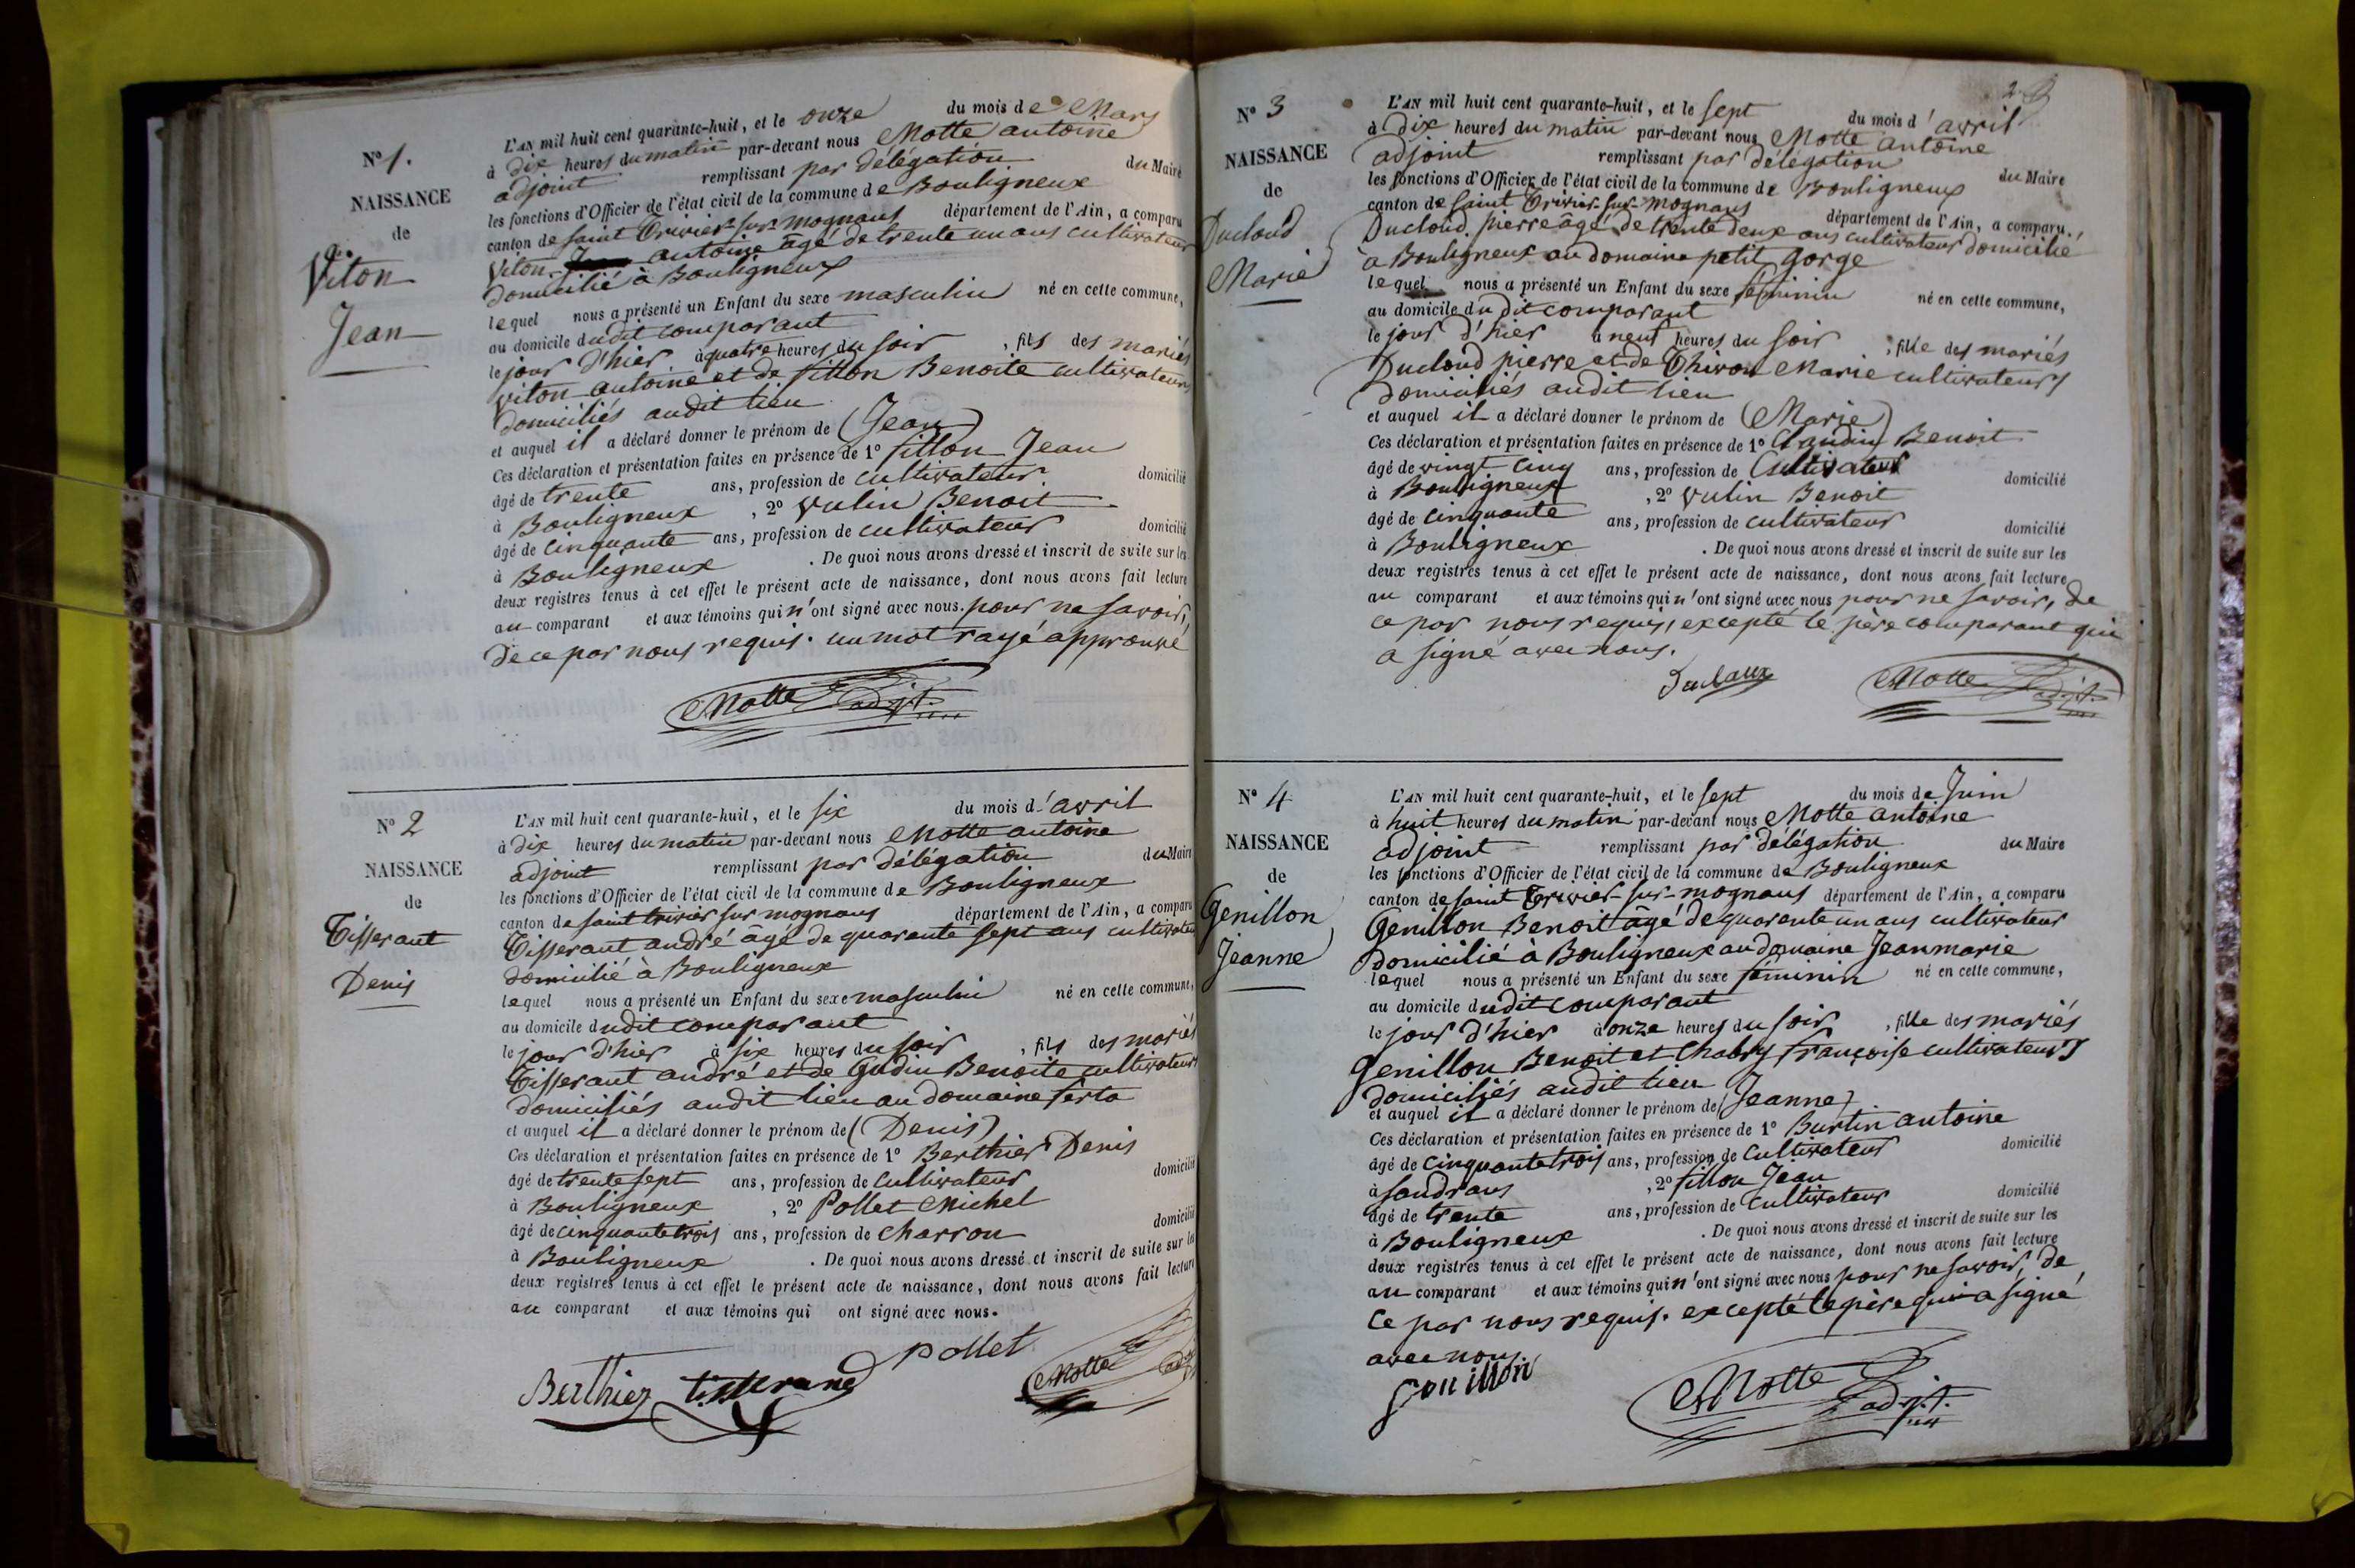 N° 1.
NAISSANCE
de
Viton
Jean
L'AN mil huit cent quarante-huit, et le onze du mois de Mars
à dix heures du matin par-devant nous Motte antoine
adjoint remplissant par délégation du Maire
les fonctions d'Officier de l'état civil de la commune de Bouligneux
canton de saint Trivier sur mognans département de l'Ain, a comparu
Viton antoine âgé de trente un ans cultivateur
domicilié à Bouligneux
lequel nous a présenté un Enfant du sexe masculin né en cette commune,
au domicile dudit comparant
le jour d'hier à quatre heures du soir, fils des mariés
viton antoine et de fillon Benoite cultivateurs
domiciliés audit lieu
et auquel il a déclaré donner le prénom de (Jean)
Ces déclaration et présentation faites en présence de 1° fillon Jean
âgé de trente ans, profession de cultivateur domicilié
à Bouligneux, 2° vulin Benoit
âgé de cinquante ans, profession de cultivateur domicilié
à Bouligneux. De quoi nous avons dressé et inscrit de suite sur les
deux registres tenus à cet effet le présent acte de naissance, dont nous avons fait lecture
au comparant et aux témoins qui n'ont signé avec nous. pour ne savoir,
de ce par nous requis. un mot rayé approuvé
Motte adjt.
N° 2
NAISSANCE
de
Tisserant
Denis
L'AN mil huit cent quarante-huit, et le six du mois d'avril
à dix heures du matin par-devant nous Motte antoine
adjoint remplissant par délégation du Maire
les fonctions d'Officier de l'état civil de la commune de Bouligneux
canton de saint trivier sur mognans département de l'Ain, a comparu
Tisserant andré âgé de quarante sept ans cultivateur
domicilié à Bouligneux
lequel nous a présenté un Enfant du sexe masculin né en cette commune,
au domicile dudit comparant
le jour d'hier à six heures du soir, fils des mariés
Tisserant andré et de Gudin Benoite cultivateurs
domiciliés audit lieu au domaine serta
et auquel il a déclaré donner le prénom de (Denis)
Ces déclaration et présentation faites en présence de 1° Berthier Denis
âgé de trente sept ans, profession de Cultivateur domicilié
à Bouligneux, 2° Pollet Michel
âgé de cinquante trois ans, profession de charron domicilié
à Bouligneux. De quoi nous avons dressé et inscrit de suite sur les
deux registres tenus à cet effet le présent acte de naissance, dont nous avons fait lecture
au comparant et aux témoins qui ont signé avec nous.
Berthier tisserand pollet Motte
N° 3
NAISSANCE
de
Ducloud
Marie
L'AN mil huit cent quarante-huit, et le sept du mois d'avril
à dix heures du matin par-devant nous Motte antoine
adjoint remplissant par délégation du Maire
les fonctions d'Officier de l'état civil de la commune de Bouligneux
canton de saint Trivier-sur-mognans département de l'Ain, a comparu.
Ducloud pierre âgé de trente deux ans cultivateur domicilié
à Bouligneux au domaine petit gorge
lequel nous a présenté un Enfant du sexe féminin né en cette commune,
au domicile dudit comparant
le jour d'hier à neuf heures du soir, fille des mariés
Ducloud pierre et de Thivon Marie cultivateurs
domiciliés audit lieu
et auquel il a déclaré donner le prénom de (Marie)
Ces déclaration et présentation faites en présence de 1° Claudin Benoit
âgé de vingt cinq ans, profession de Cultivateur domicilié
à Bouligneux, 2° vulin Benoit
âgé de cinquante ans, profession de cultivateur domicilié
à Bouligneux. De quoi nous avons dressé et inscrit de suite sur les
deux registres tenus à cet effet le présent acte de naissance, dont nous avons fait lecture
au comparant et aux témoins qui n'ont signé avec nous pour ne savoir, de
ce par nous requis, excepté le père comparant qui
a signé avec nous.
Motte adjt.
N° 4
NAISSANCE
de
Genillon
Jeanne
L'AN mil huit cent quarante-huit, et le sept du mois de Juin
à huit heures du matin par-devant nous Motte antoine
adjoint remplissant par délégation du Maire
les fonctions d'Officier de l'état civil de la commune de Bouligneux
canton de saint Trivier-sur-mognans département de l'Ain, a comparu
Genillon Benoit âgé de quarante un ans cultivateur
domicilié à Bouligneux au domaine Jeanmarie
lequel nous a présenté un Enfant du sexe féminin né en cette commune,
au domicile dudit comparant
le jour d'hier à onze heures du soir, fille des mariés
genillon Benoit et Chabry françoise cultivateurs
domiciliés audit lieu
et auquel il a déclaré donner le prénom de (Jeanne)
Ces déclaration et présentation faites en présence de 1° Burtin antoine
âgé de cinquante trois ans, profession de Cultivateur domicilié
à sandrans, 2° fillon Jean
âgé de trente ans, profession de cultivateur domicilié
à Bouligneux. De quoi nous avons dressé et inscrit de suite sur les
deux registres tenus à cet effet le présent acte de naissance, dont nous avons fait lecture
au comparant et aux témoins qui n'ont signé avec nous pour ne savoir, de
ce par nous requis. excepté le père qui a signé
avec nous.
genillon Motte adjt.